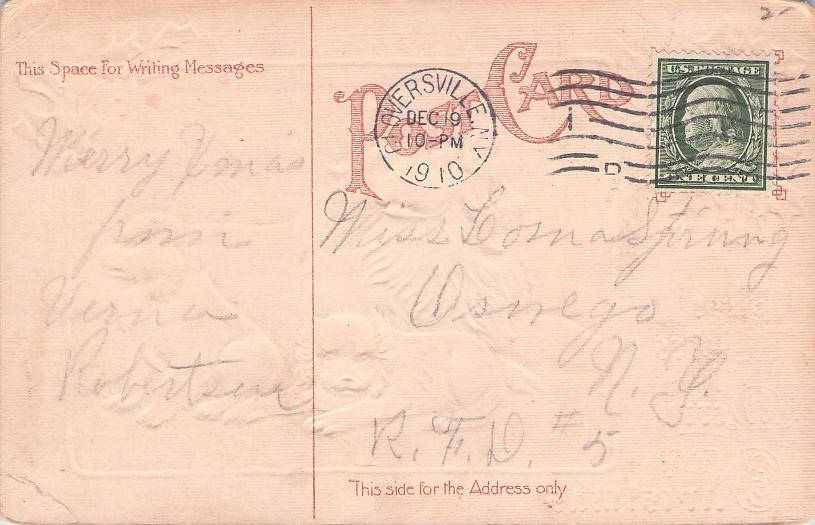 This Space For Writing Messages
POST CARD
GLOVERSVILLE N.Y.
DEC 19
10-PM
1910
U.S. POSTAGE
ONE CENT
Merry Xmas
from
Verna
Robertson
Miss Loma Sprung
Oswego
N. Y.
R. F. D. #5
This side for the Address only